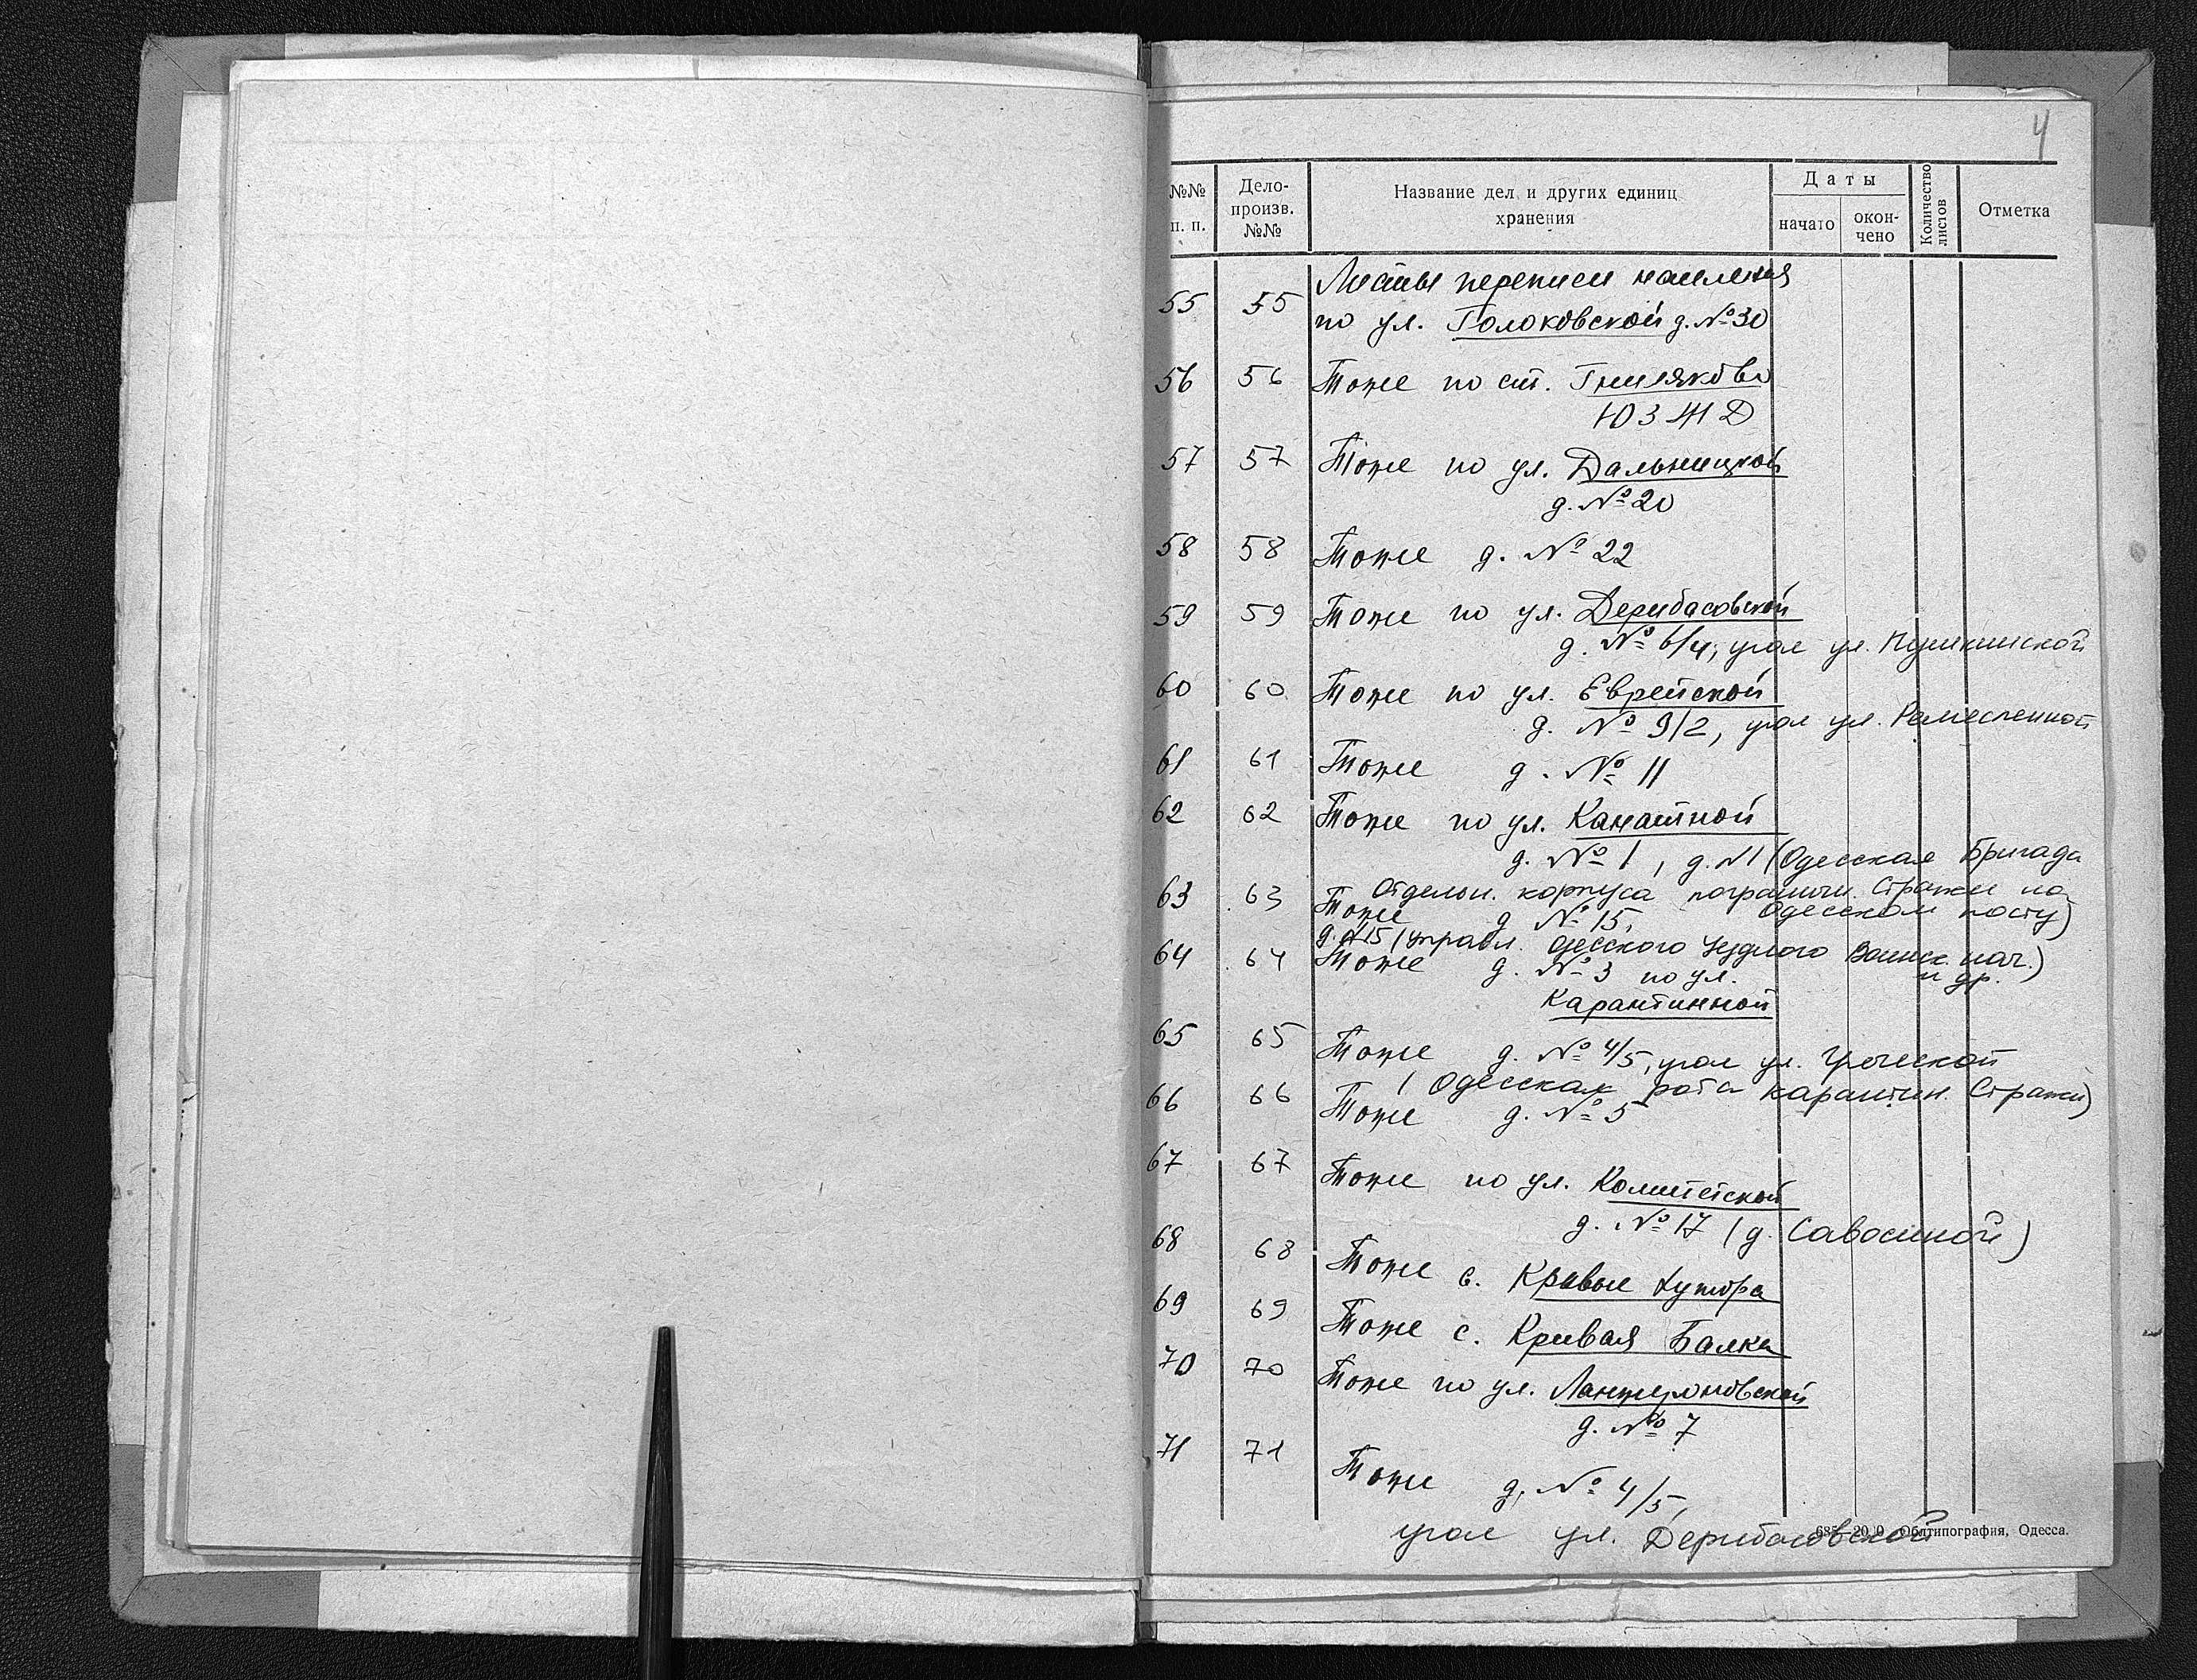 4
№№ п. п.
Дело-произв. №№
Название дел и других единиц хранения
Даты
начато
окончено
Количество листов
Отметка
55 55 Листы переписи населения
по ул. Головковской д. № 30
56 56 Тоже по ст. Гниляково
ЮЗЖД
57 57 Тоже по ул. Дальницкой
д. № 20
58 58 Тоже д. № 22
59 59 Тоже по ул. Дерибасовской
д. № 6/4, угол ул. Пушкинской
60 60 Тоже по ул. Еврейской
д. № 9/2, угол ул. Ремесленной
61 61 Тоже д. № 11
62 62 Тоже по ул. Канатной
д. № 1, д. №1 (Одесская Бригада
Отдельн. корпуса погранич. Стражи на
Одесском посту)
63 63 Тоже д. № 15,
д. №15 (управл. Одесского Уездного Воинск. нач.)
и др.
64 64 Тоже д. № 3 по ул.
Карантинной
65 65 Тоже д. № 4/5, угол ул. Греческой
(Одесская рота карантин. Стражи)
66 66 Тоже д. № 5
67 67 Тоже по ул. Комитетской
д. № 17 (д. Савосиной)
68 68 Тоже с. Кривые Хутора
69 69 Тоже с. Кривая Балка
70 70 Тоже по ул. Ланжероновской
д. № 7
71 71 Тоже д. № 4/5,
угол ул. Дерибасовской
Облтипография, Одесса.